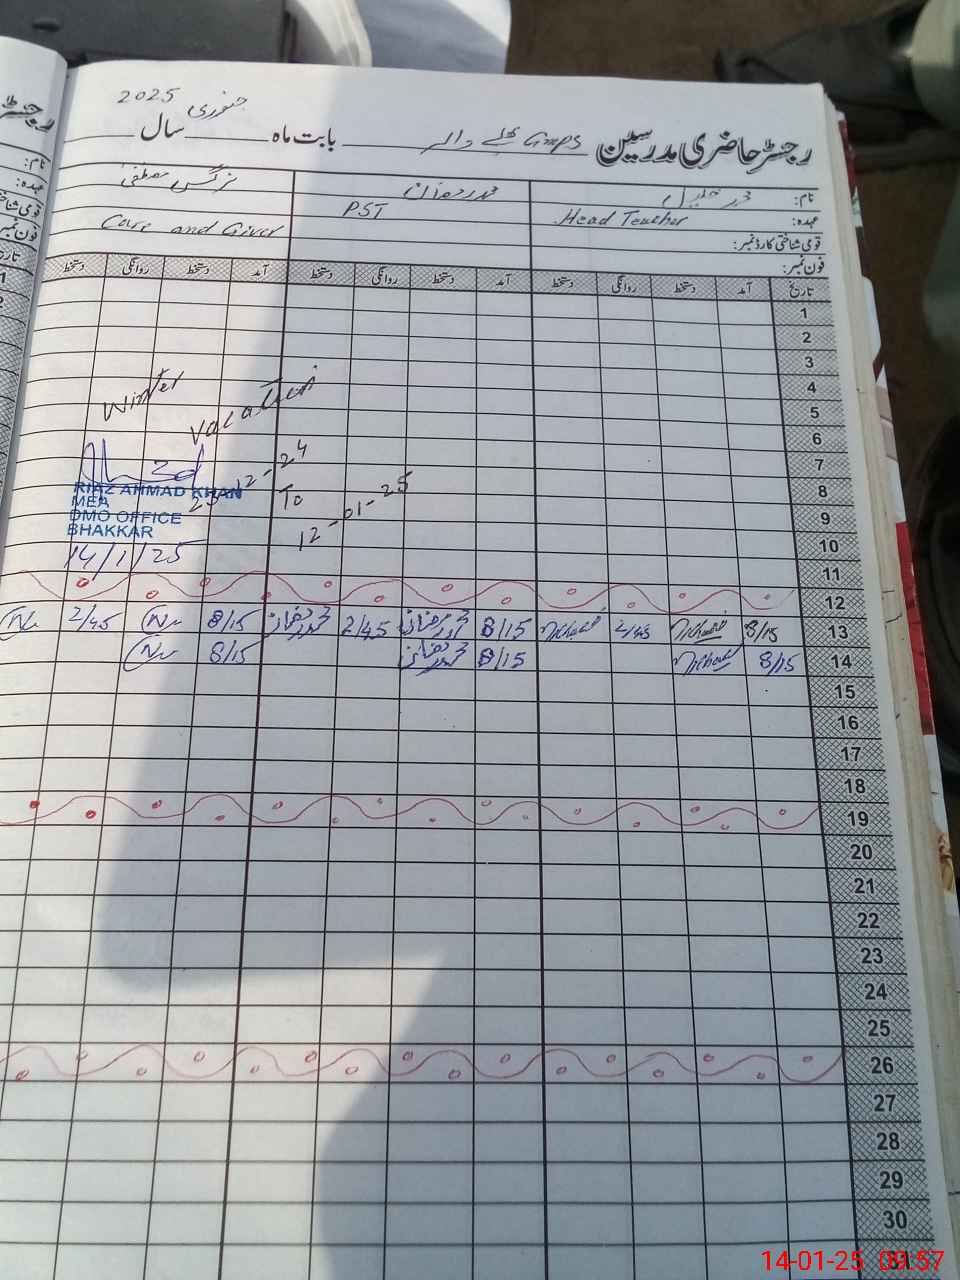 جنوری 2025
رجسٹر حاضری مدرسین GMPS والہ بابت ماہ سال
نام: محمد رمضان نرگس مصطفیٰ
عہدہ: Head Teacher PST Care and Giver
قومی شناختی کارڈ نمبر:
فون نمبر:
تاریخ آمد دستخط روانگی دستخط آمد دستخط روانگی دستخط آمد دستخط روانگی دستخط
1
2
3
4
5
6
7
8
9
10
11
12
13 8/15 2/45 8/15 محمد رمضان 2/45 محمد رمضان 8/15 2/45
14 8/15 8/15 محمد رمضان 8/15
15
16
17
18
19
20
21
22
23
24
25
26
27
28
29
30
Winter Vacation
25-12-24
To
12-01-25
RIAZ AHMAD KHAN
MEA
DMO OFFICE
BHAKKAR
14/1/25
14-01-25 09:57